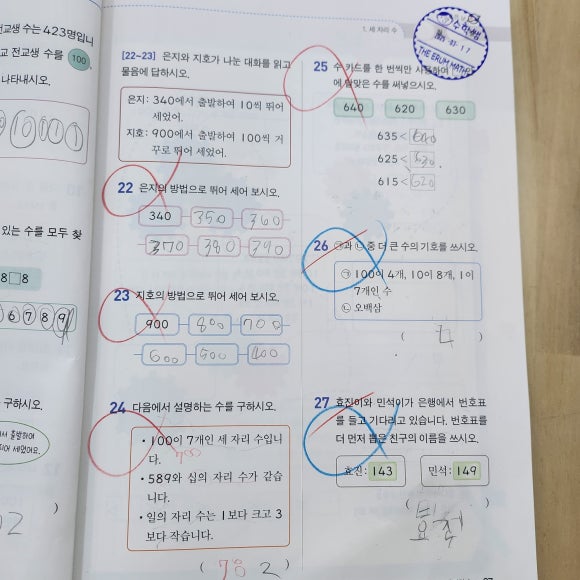 전교생 수는 423명입니
교 전교생 수를 100
나타내시오.
있는 수를 모두 찾
8□8
6 7 8 9
구하시오.
서 출발하여
뛰어 세었어요.
1. 세 자리 수
THE ERUM MATH
[22~23] 은지와 지호가 나눈 대화를 읽고
물음에 답하시오.
은지: 340에서 출발하여 10씩 뛰어
세었어.
지호: 900에서 출발하여 100씩 거
꾸로 뛰어 세었어.
22 은지의 방법으로 뛰어 세어 보시오.
340 350 360
370 380 390
23 지호의 방법으로 뛰어 세어 보시오.
900 800 700
600 500 400
24 다음에서 설명하는 수를 구하시오.
• 100이 7개인 세 자리 수입니
다.
700
• 589와 십의 자리 수가 같습
니다.
• 일의 자리 수는 1보다 크고 3
보다 작습니다.
( 78 2 )
25 수 카드를 한 번씩만 사용하여
에 알맞은 수를 써넣으시오.
640 620 630
635 < 640
625 < 630
615 < 620
26 ㉠과 ㉡ 중 더 큰 수의 기호를 쓰시오.
㉠ 100이 4개, 10이 8개, 1이
7개인 수
㉡ 오백삼
( )
27 효진이와 민석이가 은행에서 번호표
를 들고 기다리고 있습니다. 번호표를
더 먼저 뽑은 친구의 이름을 쓰시오.
효진: 143 민석: 149
( )